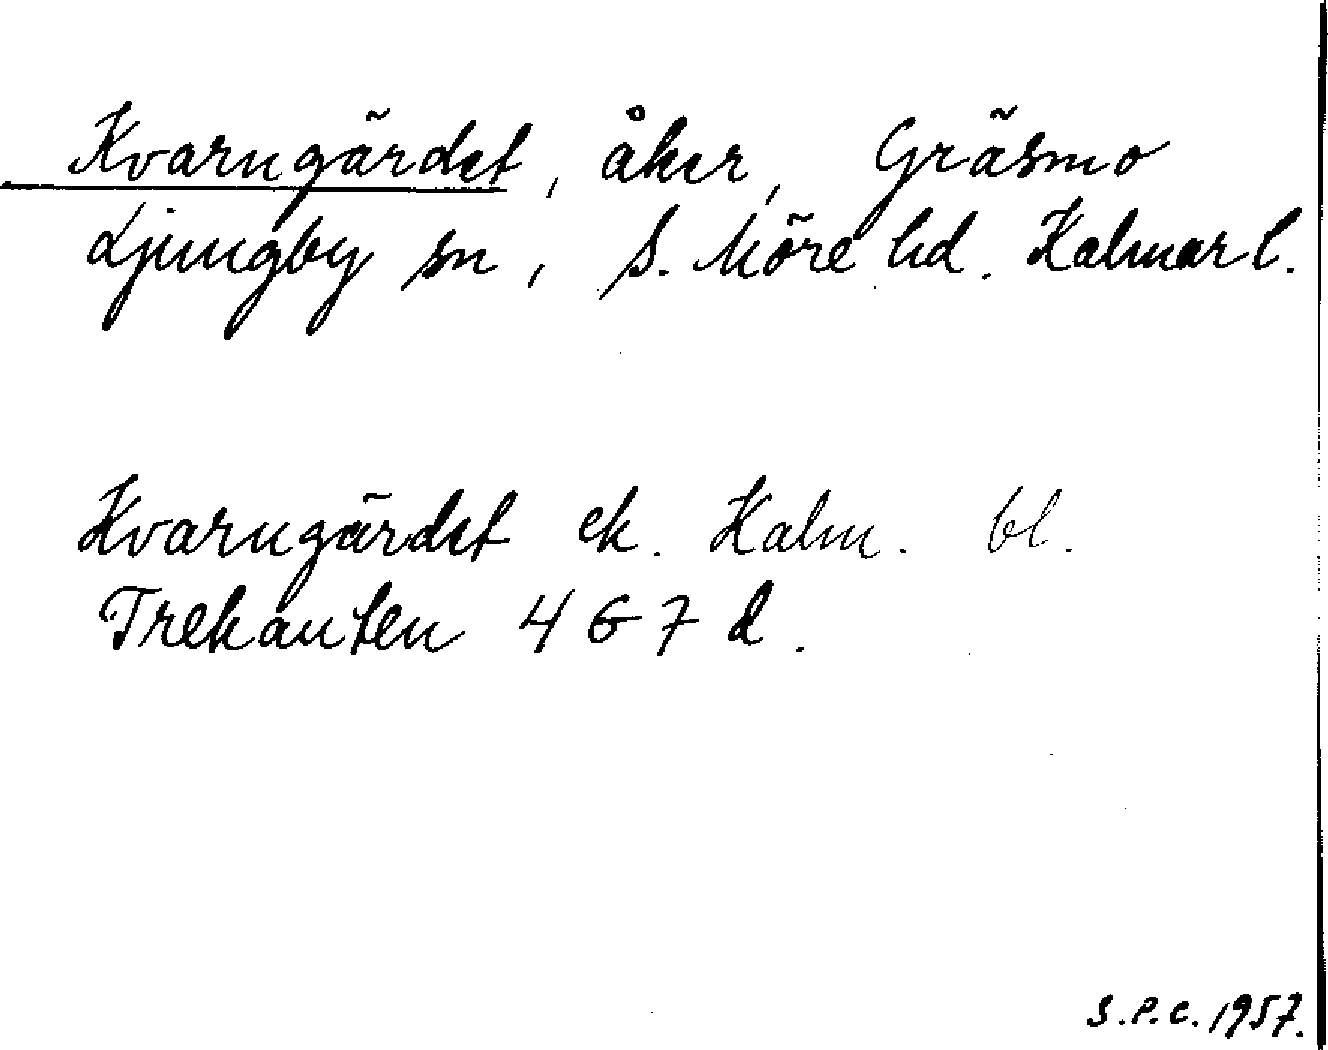 Kvarngärdet, åker, Gräsmo
Ljungby sn, S. Möre hd. Kalmar l.
Kvarngärdet ek. Kalm. bl.
Trekanten 4 G 7 d.
S.P.C. 1957.